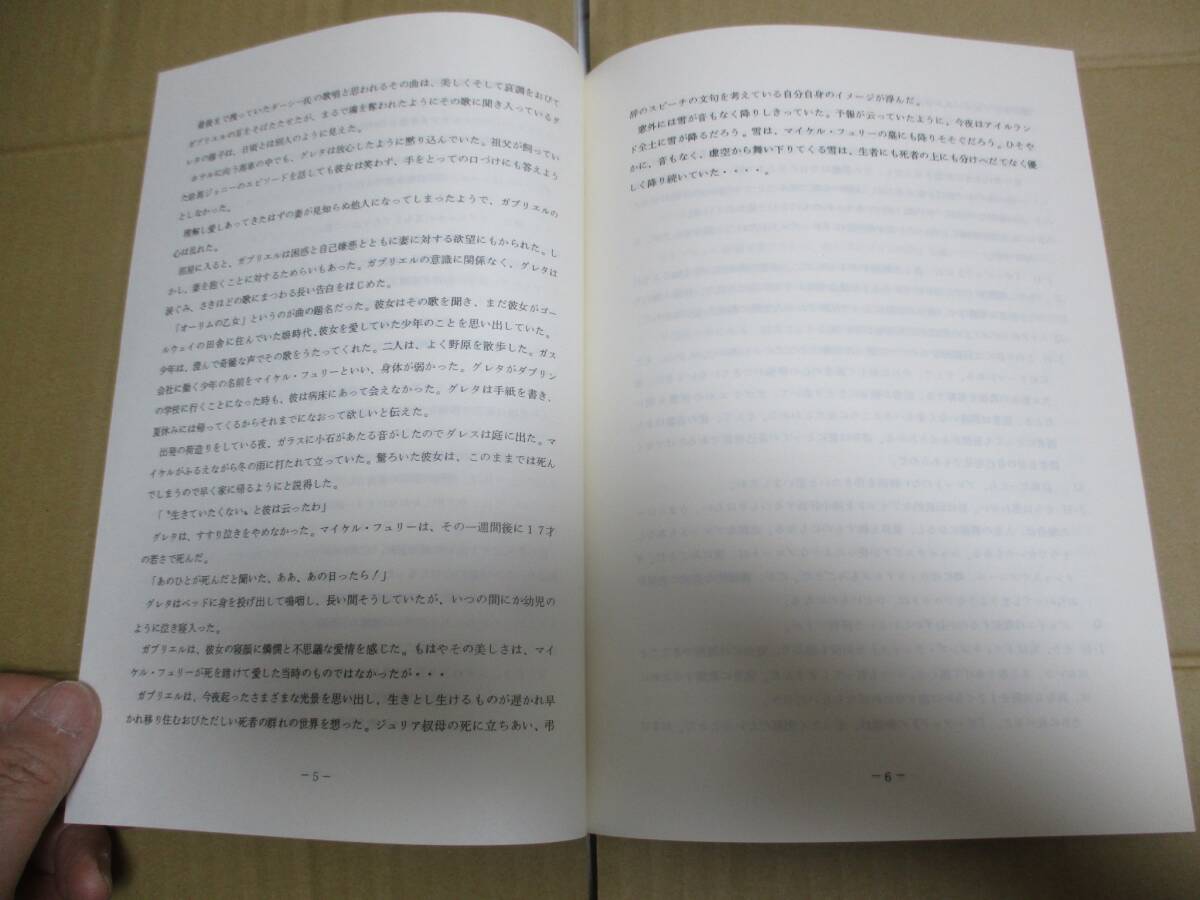 最後まで残っていたダーシー氏の歌唱と思われるその曲は、美しくそして哀調をおびて
ガブリエルの耳をそばたたせたが、まるで魂を奪われたようにその歌に聞き入っているグ
レタの様子は、日頃とは別人のように見えた。
ホテルに向う馬車の中でも、グレタは放心したように黙り込んでいた。祖父が飼ってい
た給馬ジョニーのエピソードを話しても彼女は笑わず、手をとっての口づけにも答えよう
としなかった。
理解し愛しあってきたはずの妻が見知らぬ他人になってしまったようで、ガブリエルの
心は乱れた。
部屋に入ると、ガブリエルは困惑と自己嫌悪とともに妻に対する欲望にもかられた。し
かし、妻を抱くことに対するためらいもあった。ガブリエルの意識に関係なく、グレタは
涙ぐみ、さきほどの歌にまつわる長い告白をはじめた。
「オーリムの乙女」というのが曲の題名だった。彼女はその歌を聞き、まだ彼女がゴー
ルウェイの田舎に住んでいた娘時代、彼女を愛していた少年のことを思い出していた。
少年は、澄んで奇麗な声でその歌をうたってくれた。二人は、よく野原を散歩した。ガス
会社に働く少年の名前をマイケル・フュリーといい、身体が弱かった。グレタがダブリン
の学校に行くことになった時も、彼は病床にあって会えなかった。グレタは手紙を書き、
夏休みには帰ってくるからそれまでになおって欲しいと伝えた。
出発の荷造りをしている夜、ガラスに小石があたる音がしたのでダレスは庭に出た。マ
イケルがふるえながら冬の雨に打たれて立っていた。驚ろいた彼女は、このままでは死ん
でしまうので早く家に帰るようにと説得した。
「〝生きていたくない〟と彼は云ったわ」
グレタは、すすり泣きをやめなかった。マイケル・フュリーは、その一週間後に17才
の若さで死んだ。
「あのひとが死んだと聞いた、ああ、あの日ったら!」
グレタはベッドに身を投げ出して嗚咽し、長い間そうしていたが、いつの間にか幼児の
ように泣き寝入った。
ガブリエルは、彼女の寝顔に憐憫と不思議な愛情を感じた。もはやその美しさは、マイ
ケル・フュリーが死を賭けて愛した当時のものではなかったが・・・
ガブリエルは、今夜起ったさまざまな光景を思い出し、生きとし生けるものが遅かれ早
かれ移り住むおびただしい死者の群れの世界を想った。ジュリア叔母の死に立ちあい、弔
－5－
辞のスピーチの文句を考えている自分自身のイメージが浮んだ。
窓外には雪が音もなく降りしきっていた。予報が云っていたように、今夜はアイルラン
ド全土に雪が降るだろう。雪は、マイケル・フュリーの墓にも降りそそぐだろう。ひそや
かに、音もなく、虚空から舞い下りてくる雪は、生者にも死者の上にも分けへだてなく優
しく降り続いていた・・・・。
－6－